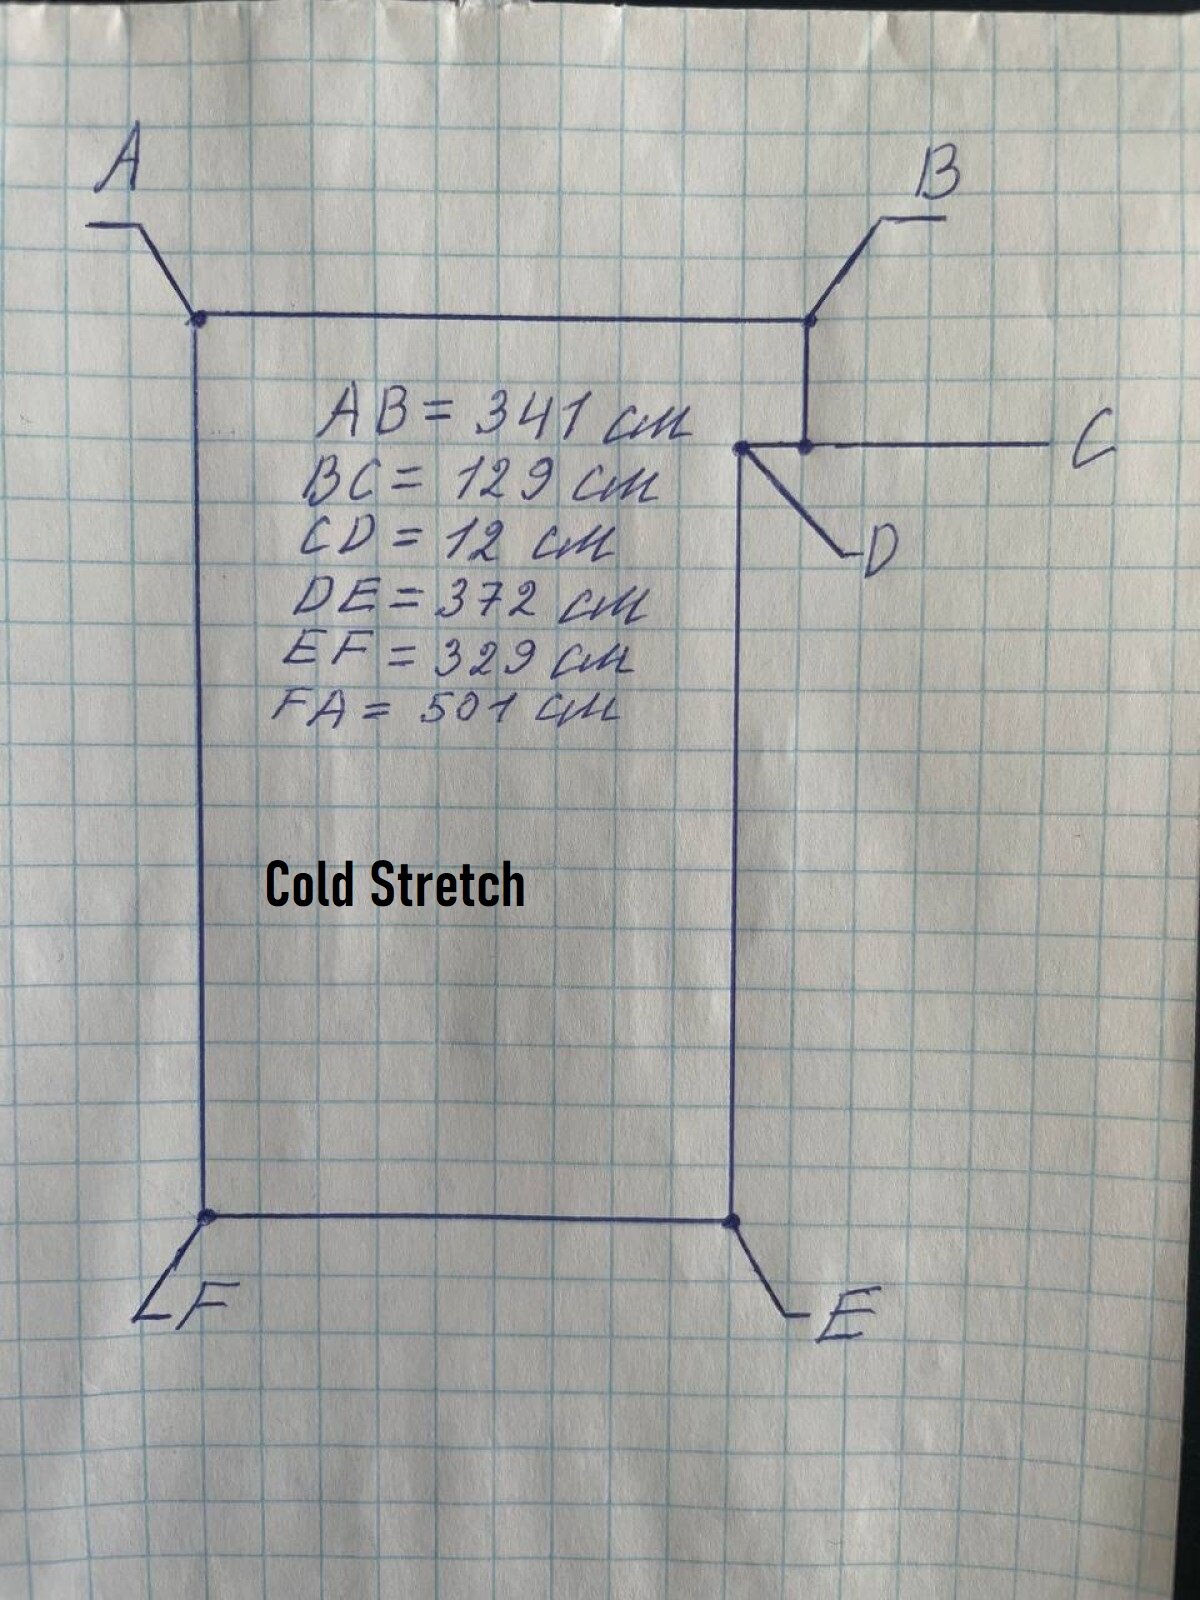 A
B
AB = 341 см
BC = 129 см
C
CD = 12 см
D
DE = 372 см
EF = 329 см
FA = 501 см
Cold Stretch
F
E